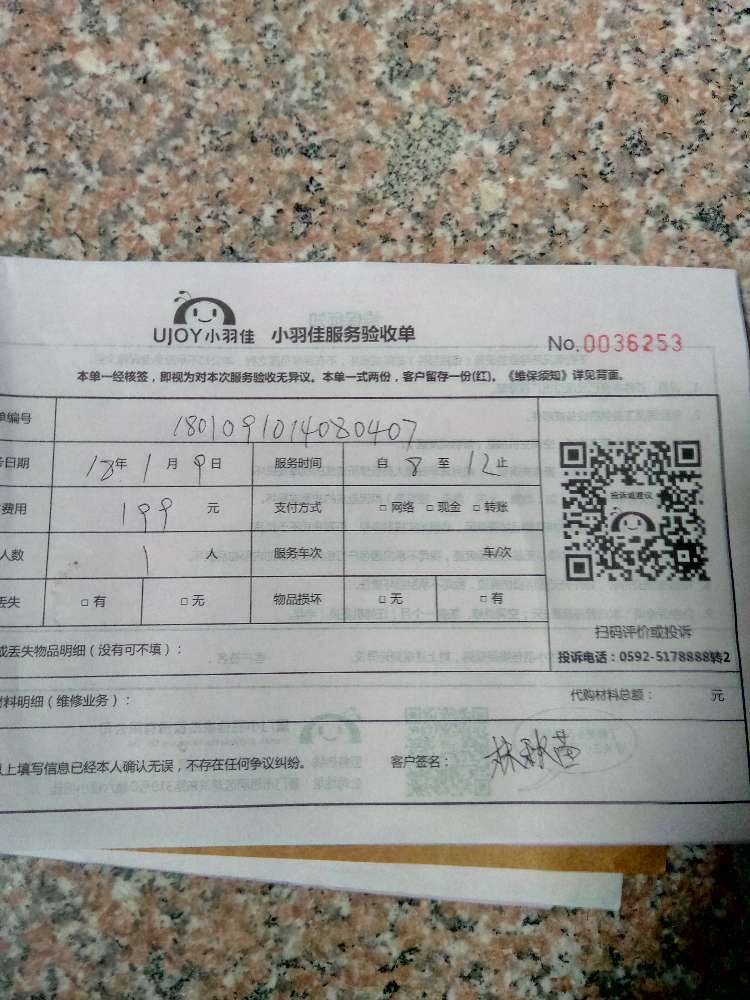 UJOY小羽佳 小羽佳服务验收单
No.0036253
本单一经核签，即视为对本次服务验收无异议。本单一式两份，客户留存一份(红)。《维保须知》详见背面。
单编号 1801091014080407
日期 18年1月9日 服务时间 自8至12止
费用 199 元 支付方式 □网络 □现金 □转账
人数 1 人 服务车次 车/次
丢失 □有 □无 物品损坏 □无 □有
投诉或建议
扫码评价或投诉
投诉电话：0592-5178888转2
或丢失物品明细（没有可不填）：
材料明细（维修业务）： 代购材料总额： 元
以上填写信息已经本人确认无误，不存在任何争议纠纷。 客户签名：